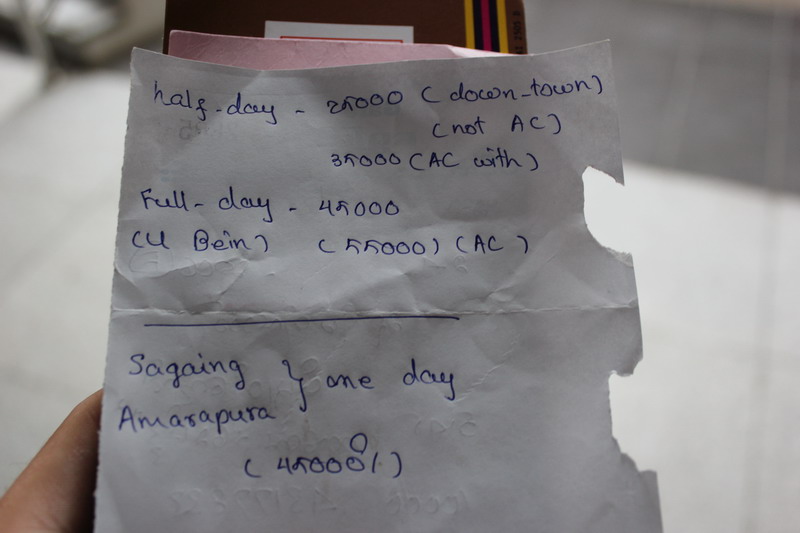 half-day - 25000 (down-town)
(not AC)
35000 (AC with)
Full-day - 45000
(U Bein) (55000) (AC)
Sagaing } one day
Amarapura
(45000/.)